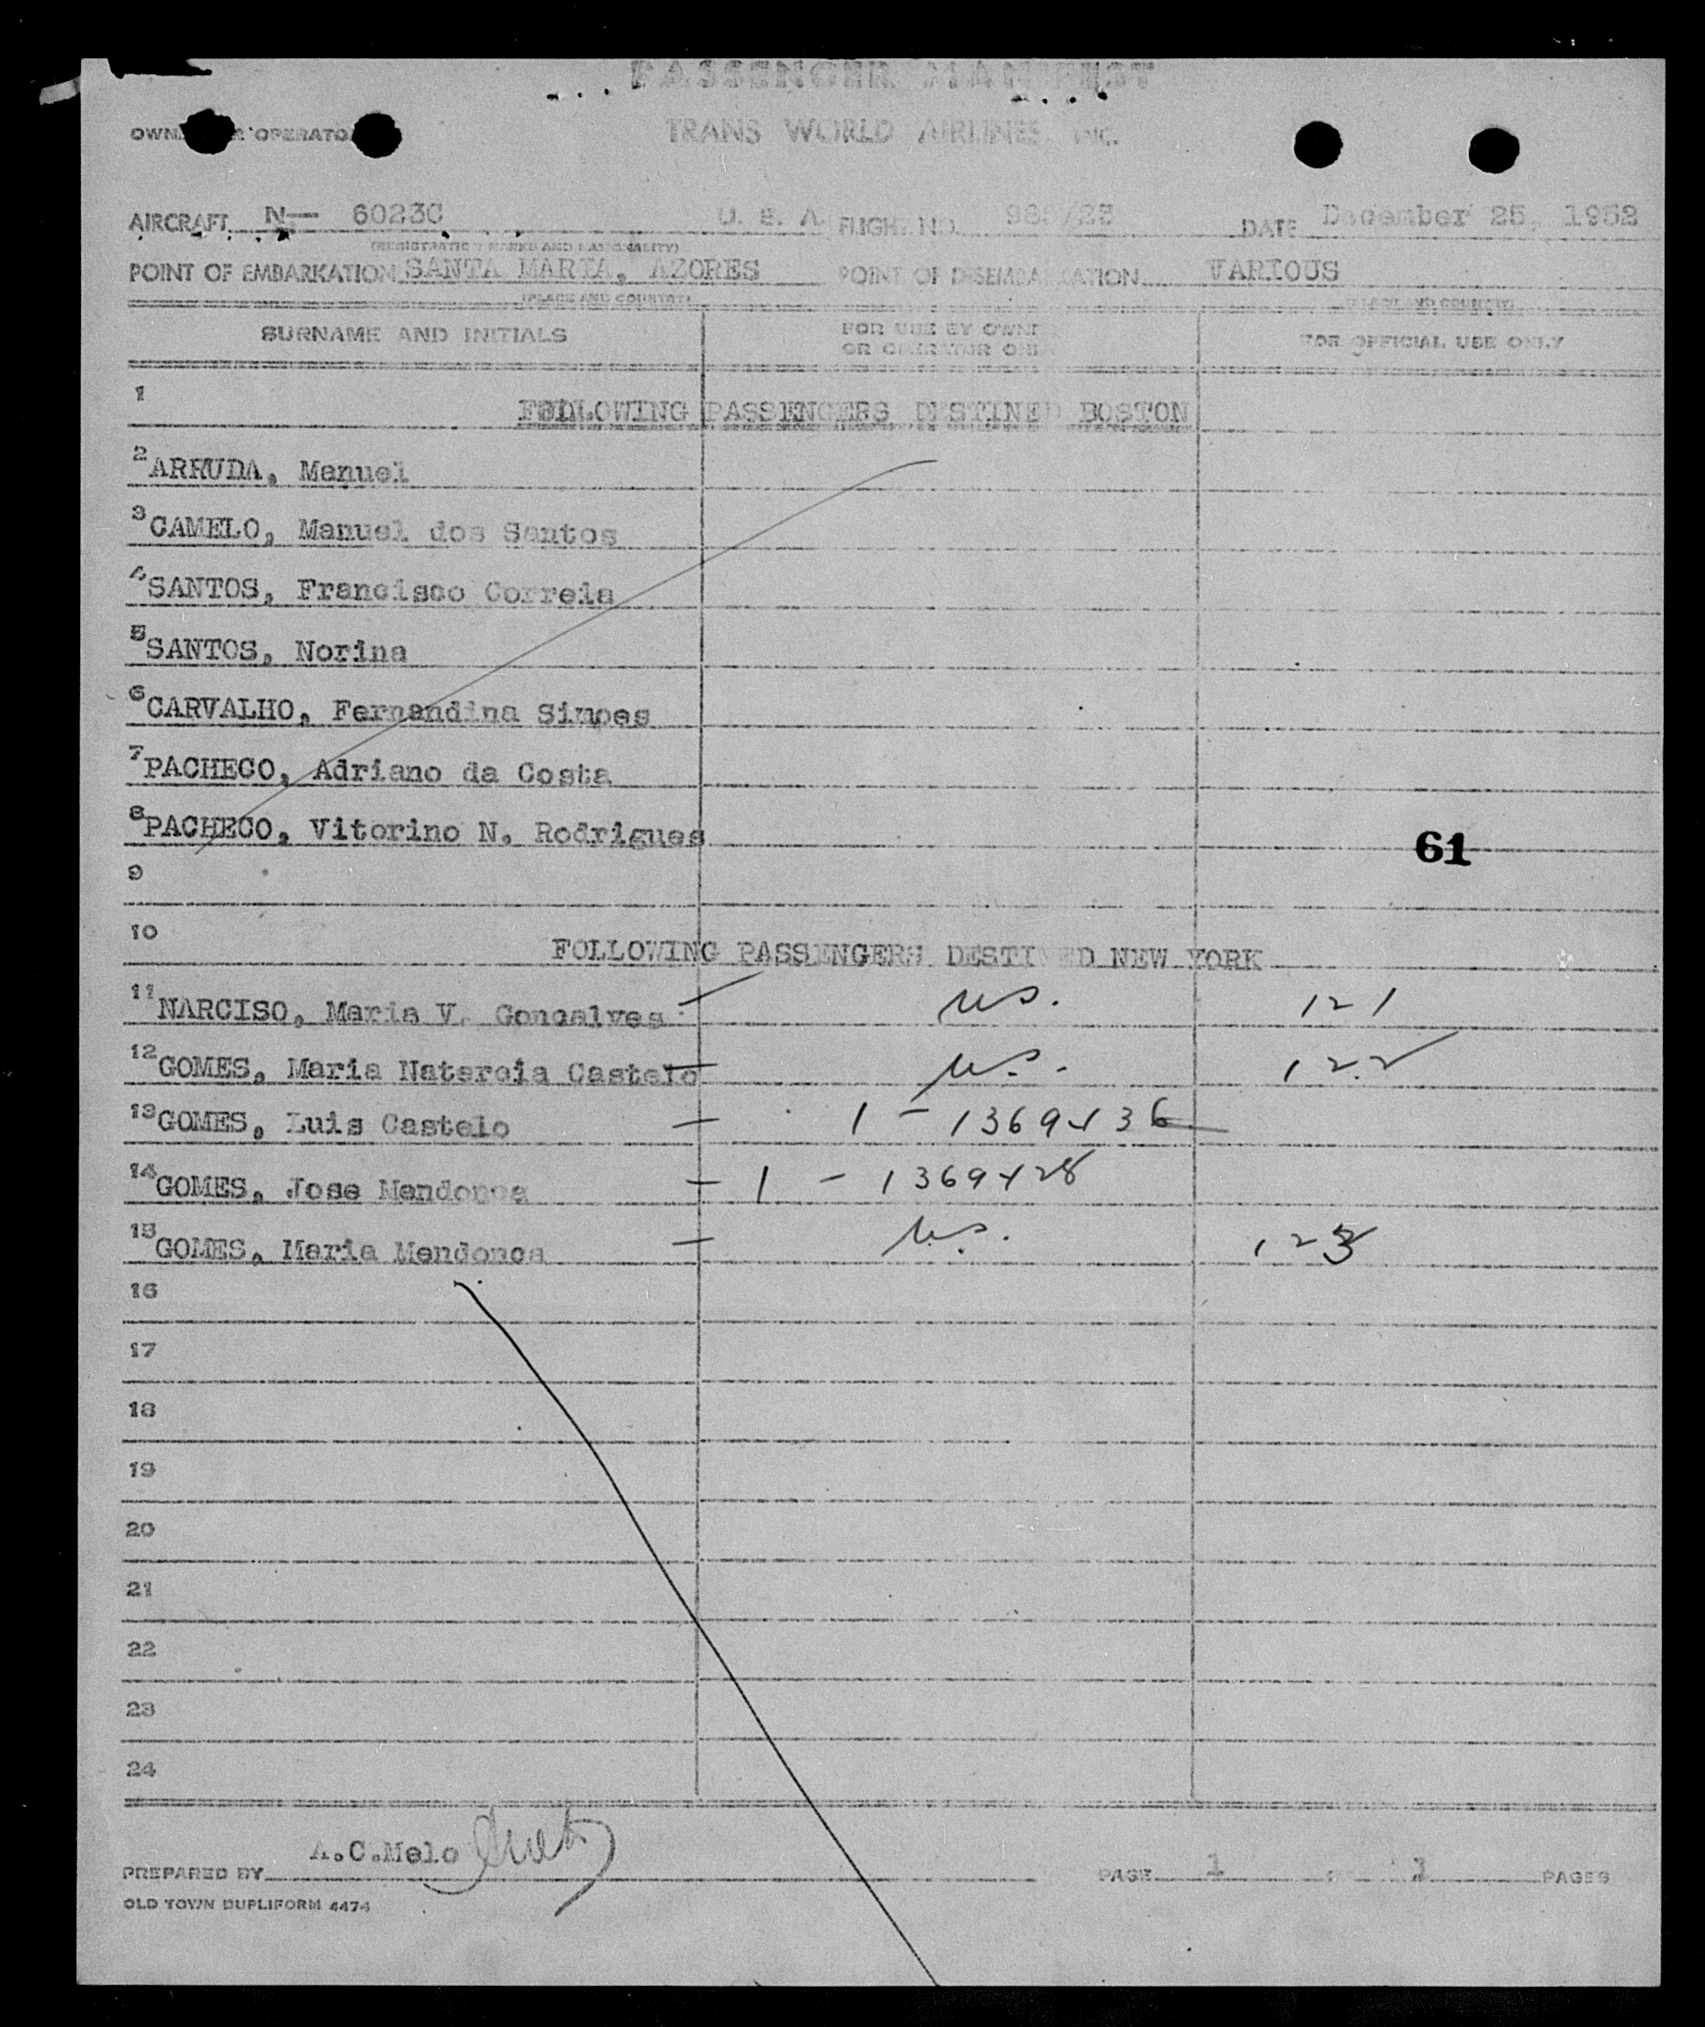 PASSENGER MANIFEST
OWNER OR OPERATOR TRANS WORLD AIRLINES INC.
AIRCRAFT N— 6023C U. S. A. FLIGHT NO. DATE December 25, 1952
(REGISTRATION MARKS AND NATIONALITY)
POINT OF EMBARKATION SANTA MARIA, AZORES POINT OF DISEMBARKATION VARIOUS
(PLACE AND COUNTRY) (PLACE AND COUNTRY)
SURNAME AND INITIALS FOR USE BY OWNER OR OPERATOR ONLY FOR OFFICIAL USE ONLY
1 FOLLOWING PASSENGERS DESTINED BOSTON
2 ARRUDA, Manuel
3 CAMELO, Manuel dos Santos
4 SANTOS, Francisco Correia
5 SANTOS, Norina
6 CARVALHO, Fernandina Simoes
7 PACHECO, Adriano da Costa
8 PACHECO, Vitorino N. Rodrigues
61
9
10 FOLLOWING PASSENGERS DESTINED NEW YORK
11 NARCISO, Maria V. Goncalves — us. 121
12 GOMES, Maria Natercia Castelo — us. 122
13 GOMES, Luis Castelo — 1 - 1369436
14 GOMES, Jose Mendonca — 1 - 1369428
15 GOMES, Maria Mendonca — us. 123
16
17
18
19
20
21
22
23
24
PREPARED BY A.C.Melo PAGE 1 OF 1 PAGES
OLD TOWN DUPLIFORM 4474